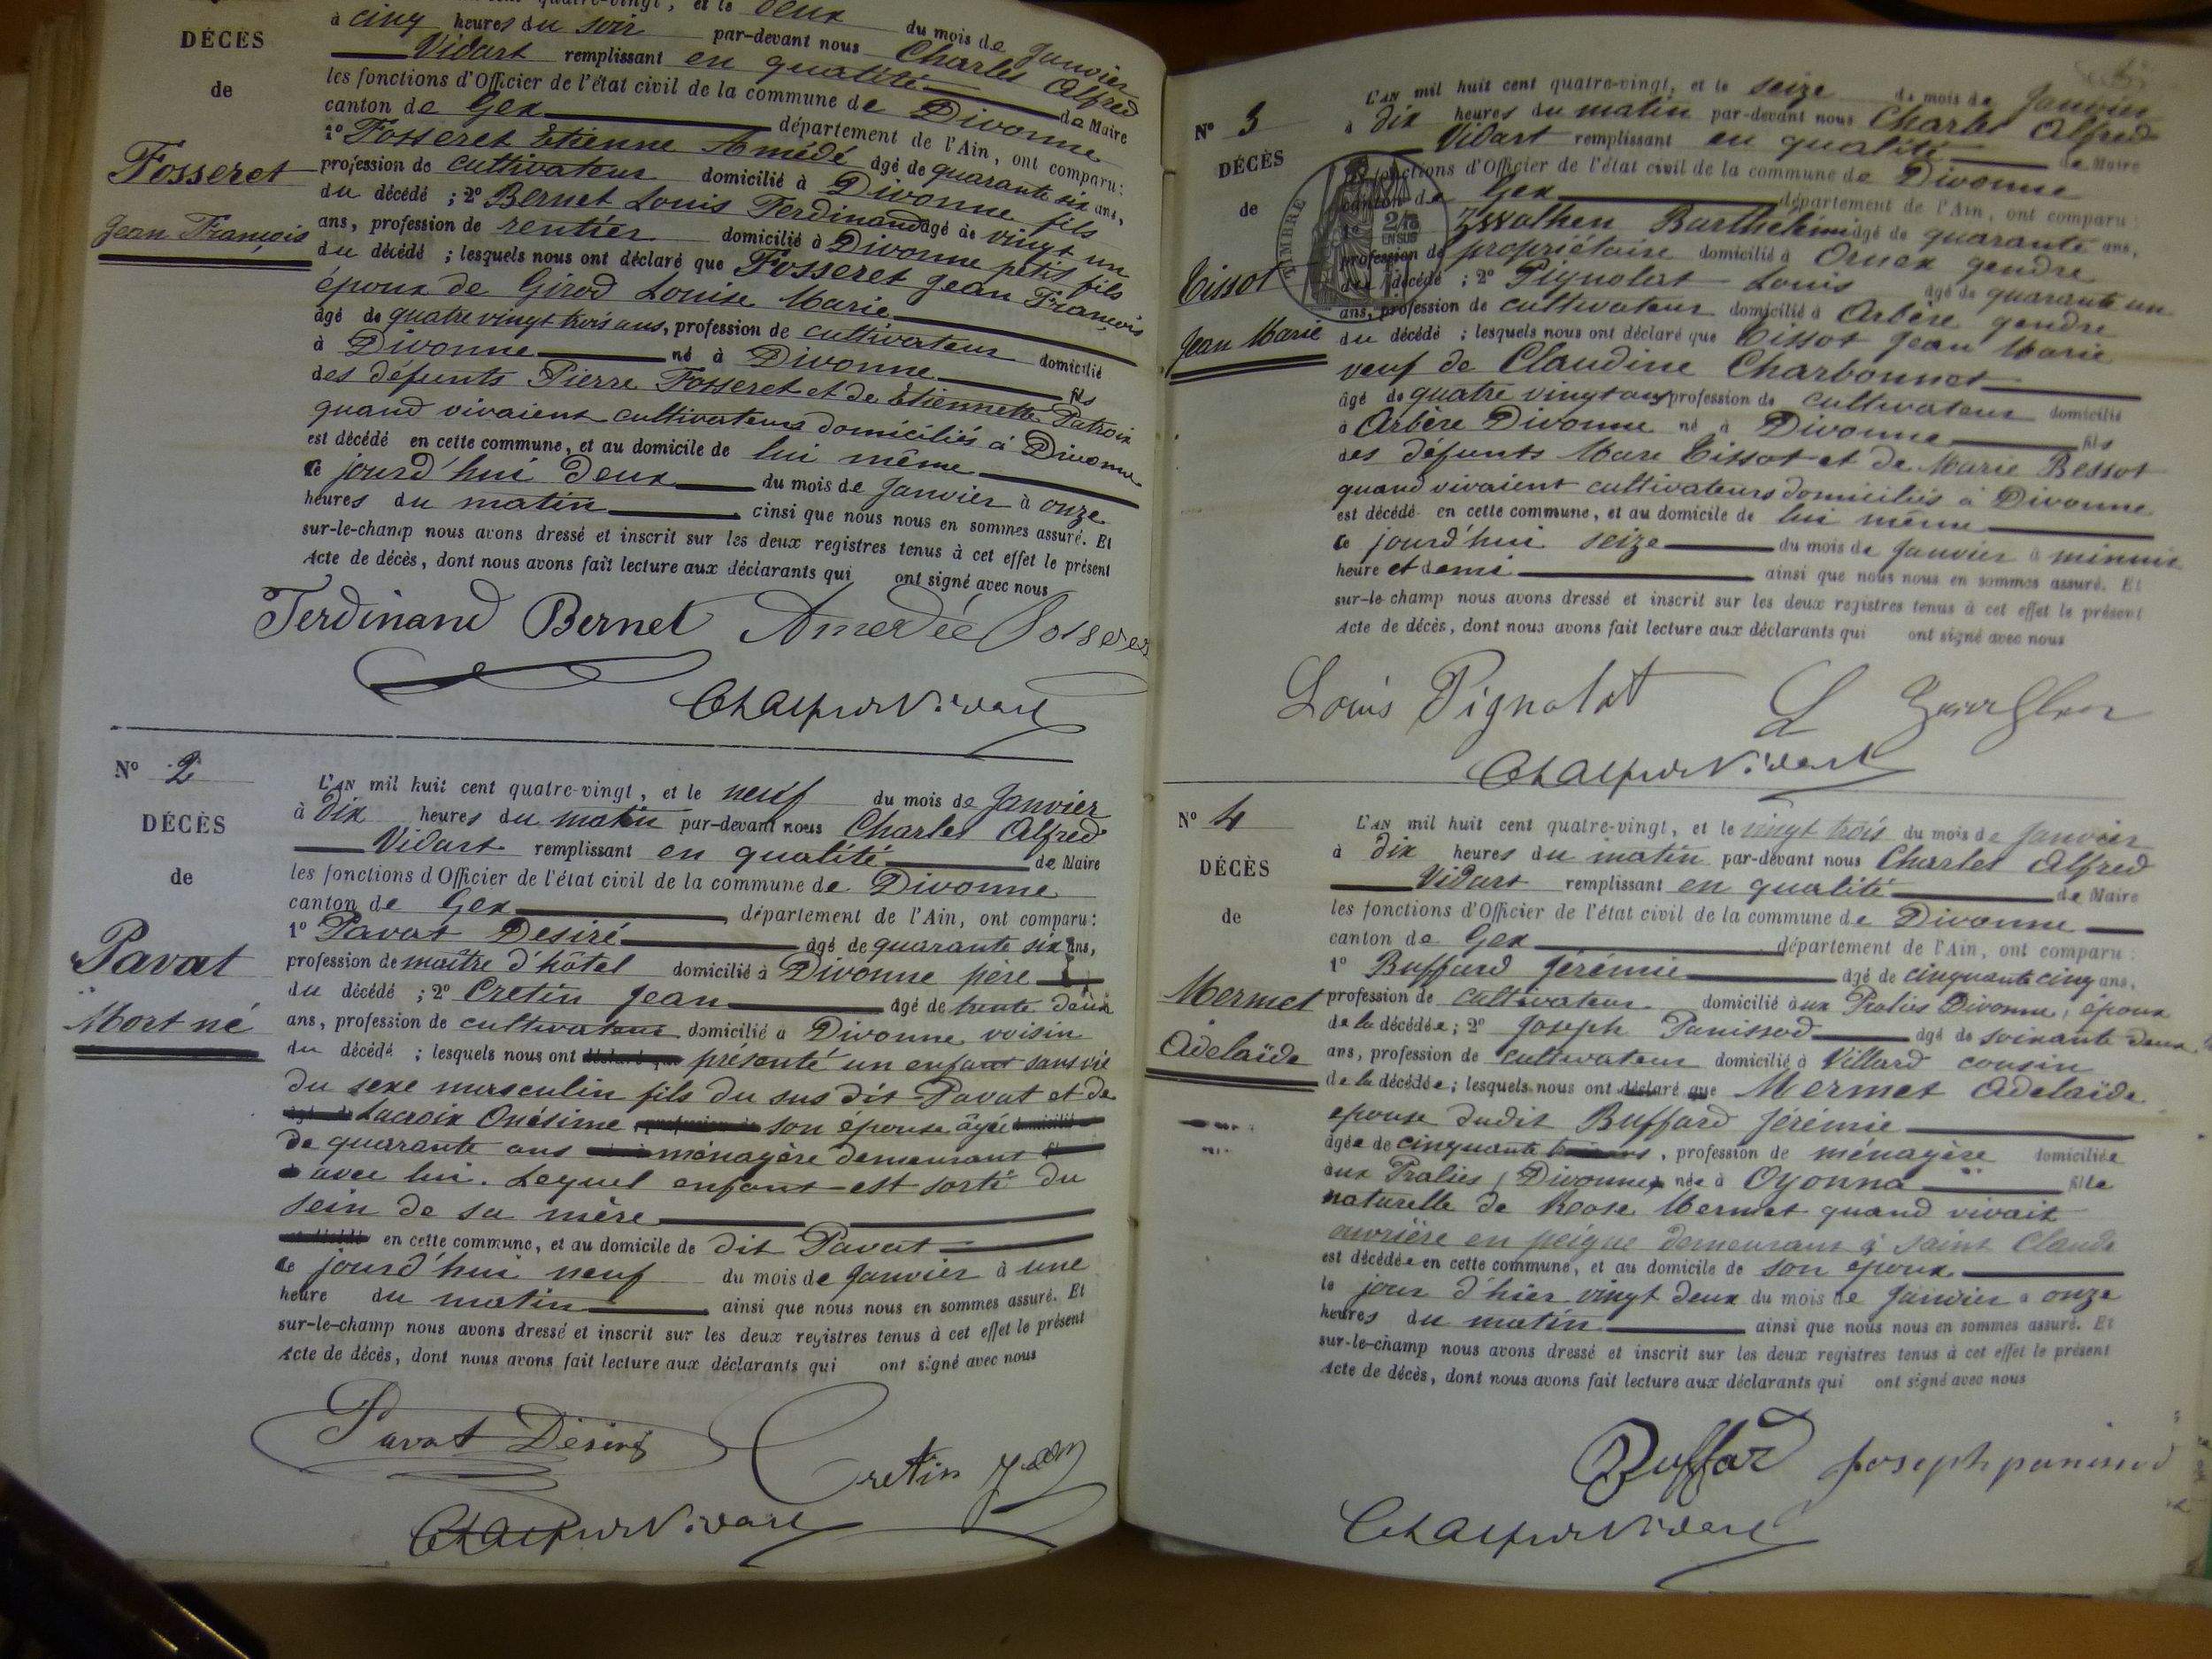 quatre-vingt, et le deux du mois de Janvier
à cinq heures du soir par-devant nous Charles Alfred
Vidart remplissant en qualité de Maire
les fonctions d'Officier de l'état civil de la commune de Divonne
canton de Gex département de l'Ain, ont comparu:
1º Fosseret Etienne Amédé âgé de quarante six ans,
profession de cultivateur domicilié à Divonne fils
du décédé ; 2º Bernet Louis Ferdinand âgé de vingt un
ans, profession de rentier domicilié à Divonne petit fils
du décédé ; lesquels nous ont déclaré que Fosseret Jean François
époux de Girod Louise Marie
âgé de quatre vingt trois ans, profession de cultivateur domicilié
à Divonne né à Divonne fils
des défunts Pierre Fosseret et de Etiennette Patroix
quand vivaient cultivateurs domiciliés à Divonne
est décédé en cette commune, et au domicile de lui même
ce jourd'hui deux du mois de Janvier à onze
heures du matin ainsi que nous nous en sommes assuré. Et
sur-le-champ nous avons dressé et inscrit sur les deux registres tenus à cet effet le présent
Acte de décès, dont nous avons fait lecture aux déclarants qui ont signé avec nous
DÉCÈS
de
Fosseret
Jean François
Ferdinand Bernet Amédée Fosseret
Ch Alfred Vidart
Nº 2
DÉCÈS
de
Pavat
Mort né
L'AN mil huit cent quatre-vingt, et le neuf du mois de Janvier
à dix heures du matin par-devant nous Charles Alfred
Vidart remplissant en qualité de Maire
les fonctions d'Officier de l'état civil de la commune de Divonne
canton de Gex département de l'Ain, ont comparu:
1º Pavat Desiré âgé de quarante six ans,
profession de maître d'hôtel domicilié à Divonne père
du décédé ; 2º Cretin Jean âgé de trente deux
ans, profession de cultivateur domicilié à Divonne voisin
du décédé ; lesquels nous ont déclaré que présenté un enfant sans vie
du sexe masculin fils du sus dit Pavat et de
Lacroix Onésime son épouse âgée
de quarante ans ménagère demeurant
avec lui. Lequel enfant est sorti du
sein de sa mère
en cette commune, et au domicile de dit Pavat
ce jourd'hui neuf du mois de Janvier à une
heure du matin ainsi que nous nous en sommes assuré. Et
sur-le-champ nous avons dressé et inscrit sur les deux registres tenus à cet effet le présent
Acte de décès, dont nous avons fait lecture aux déclarants qui ont signé avec nous
Pavat Désiré Cretin Jean
Ch Alfred Vidart
Nº 3
DÉCÈS
de
Tissot
Jean Marie
TIMBRE
2/10
EN SUS
L'AN mil huit cent quatre-vingt, et le seize du mois de Janvier
à dix heures du matin par-devant nous Charles Alfred
Vidart remplissant en qualité de Maire
les fonctions d'Officier de l'état civil de la commune de Divonne
canton de Gex département de l'Ain, ont comparu:
1º Barthélémi âgé de quarante ans,
profession de propriétaire domicilié à Ornex gendre
du décédé ; 2º Pignolat Louis âgé de quarante un
ans, profession de cultivateur domicilié à Arbère gendre
du décédé ; lesquels nous ont déclaré que Tissot Jean Marie
veuf de Claudine Charbonnet
âgé de quatre vingt ans profession de cultivateur domicilié
à Arbère Divonne né à Divonne fils
des défunts Marc Tissot et de Marie Bessot
quand vivaient cultivateurs domiciliés à Divonne
est décédé en cette commune, et au domicile de lui même
ce jourd'hui seize du mois de Janvier à minuit
heure et demi ainsi que nous nous en sommes assuré. Et
sur-le-champ nous avons dressé et inscrit sur les deux registres tenus à cet effet le présent
Acte de décès, dont nous avons fait lecture aux déclarants qui ont signé avec nous
Louis Pignolat
Ch Alfred Vidart
Nº 4
DÉCÈS
de
Mermet
Adelaïde
L'AN mil huit cent quatre-vingt, et le vingt trois du mois de Janvier
à dix heures du matin par-devant nous Charles Alfred
Vidart remplissant en qualité de Maire
les fonctions d'Officier de l'état civil de la commune de Divonne
canton de Gex département de l'Ain, ont comparu:
1º Buffard Jérémie âgé de cinquante cinq ans,
profession de cultivateur domicilié aux Pralies Divonne, époux
de la décédée ; 2º Joseph Panissod âgé de soixante deux
ans, profession de cultivateur domicilié à Villard cousin
de la décédée ; lesquels nous ont déclaré que Mermet Adelaïde
epouse dudit Buffard Jérémie
âgée de cinquante, profession de ménagère domiciliée
aux Pralies (Divonne) née à Oyonna fille
naturelle de Roose Mermet quand vivait
ouvrière en peigne demeurant à Saint Claude
est décédée en cette commune, et au domicile de son époux
le jour d'hier vingt deux du mois de Janvier à onze
heures du matin ainsi que nous nous en sommes assuré. Et
sur-le-champ nous avons dressé et inscrit sur les deux registres tenus à cet effet le présent
Acte de décès, dont nous avons fait lecture aux déclarants qui ont signé avec nous
Buffard Joseph panissod
Ch Alfred Vidart